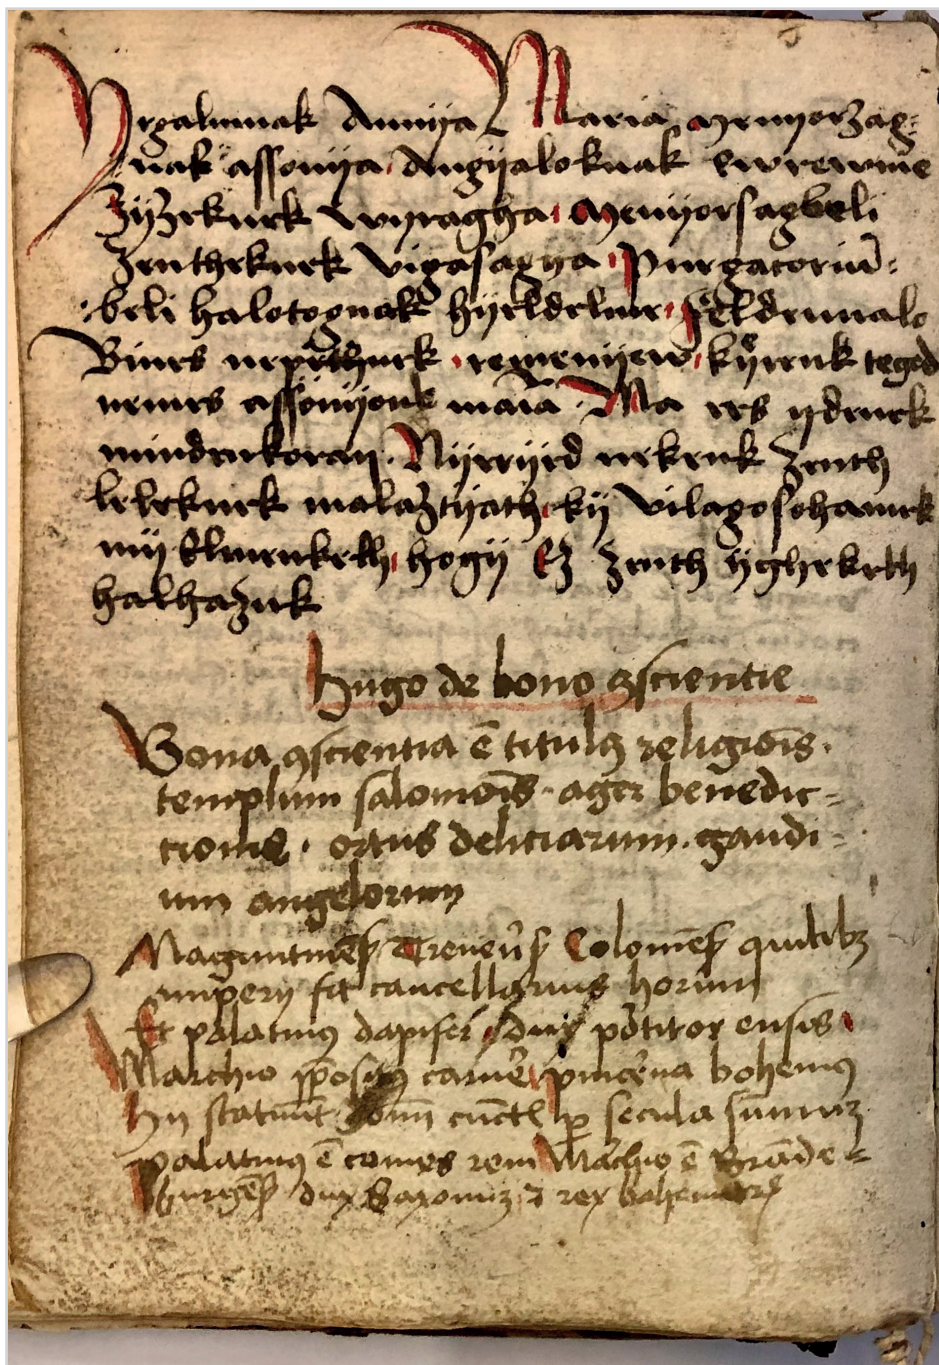 Irgalumnak Annÿa Maria Menÿorzag:
nak assonÿa Angÿaloknak ewrewme
Zÿzeknek wÿragha Menÿorsagbeli
zentheknek vigasagÿa Purgatoriū:
beli halotognak hÿeldelme feldeinalo
Bines nepÿthnek remenÿew kÿrenk teged
nemes assonÿonk mā̄ia Ma ees ÿdeuek
mindenkoran Nÿerÿed nekenk zenth
leleknek malaztÿath kÿ vilagosohamek
mÿ Elmenketh hogÿ Ez zenth ÿgheketh
halhazuk
hugo de bono ꝯscientie
Bona ꝯscientia ē titulꝰ religiōis.
templum salomōis. ager benedic=
tionis. ortus delitiarum. gaudi=
um angelorum
Magūtinēs Treueῆs Colonīēs quilibꝫ
impery fit cancellarius horum
Et palatinꝰ dapifer dux portitor ensis
Marchio p̄positꝰ camēre pincerna bohemꝰ
hy statuūt dominū cūctꝭ ꝑ secula summū
palatinꝰ ē comes reni Marchio ē Brāde=
burgēs dux Saxonū ⁊ rex bohemorū